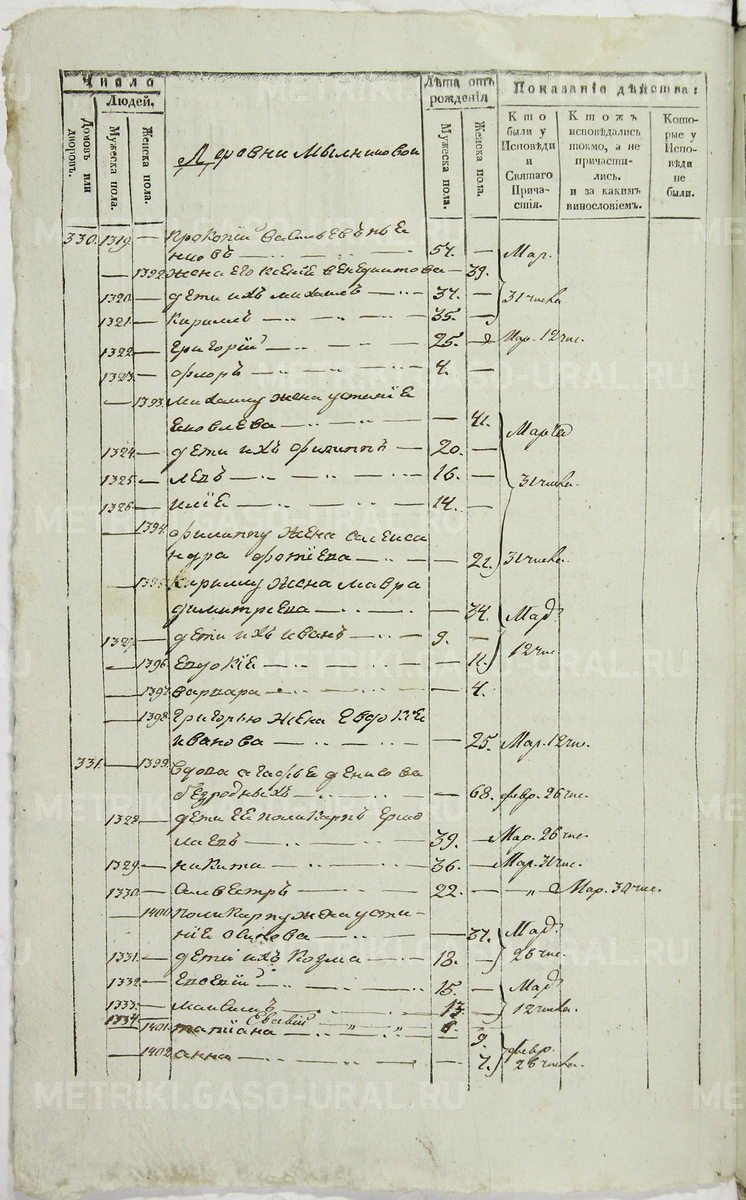 Число
Людей.
Домовъ или дворовъ.
Мужеска пола.
Женска пола.
Деревни Мылниковой
Лѣта отъ рожденія
Мужеска пола.
Женска пола.
Показаніе дѣйства:
Кто были у Исповѣди и Святаго Причастія.
Ктожъ исповѣдались токмо, а не причастились. и за какимъ винословіемъ.
Которые у Исповѣди не были.
330. 1319. — Прокопій
новъ — 54. — Мар.
— 1392. жена его — 39.
1320. — дети ихъ михаилъ — 37. — 31 числа
1321. — Кирилъ — 35. —
1322. — Григорій — 25. — Мар. 12 чис.
1323. — флоръ — 4. —
— 1393. михаилу жена устиніе
Яковлева — 41. Марта
1324. — дети ихъ филипъ — 20. —
1325. — левъ — 16. — 31 числа.
1326. — иліе — 14. —
— 1394. филиппу жена алекса
ндра фотіева — 21. 31 числа.
— 1395. Кирилу жена мавра
димитріева — 34. Мар.
1327. — дети ихъ иванъ — 9. —
— 1396. Евдокіе — 11. 12 чис.
— 1397. варвара — 4.
— 1398. Григорью жена Евдокіе
иванова — 25. Мар. 12 чис.
331. — 1399. вдова агафье денисова
безродныхъ — 68. февр. 26 чис.
1328. — дети её поликарпъ Ермо
лаевъ — 39. — Мар. 26 чис.
1329. — никита — 36. — Мар. 31 чис.
1330. — Силвестръ — 22. — „ — Мар. 31 чис.
— 1400. поликарпу жена усти-
ніе осипова — 37. Мар.
1331. — дети ихъ Козма — 18. — 26 чис.
1332. — — 15. — Мар.
1333. — максимъ — 13. — 12 числа.
1334. 6
— 1401. татіана — 9. февр.
— 1402. анна — 7. 26 числа.
METRIKI.GASO-URAL.RU